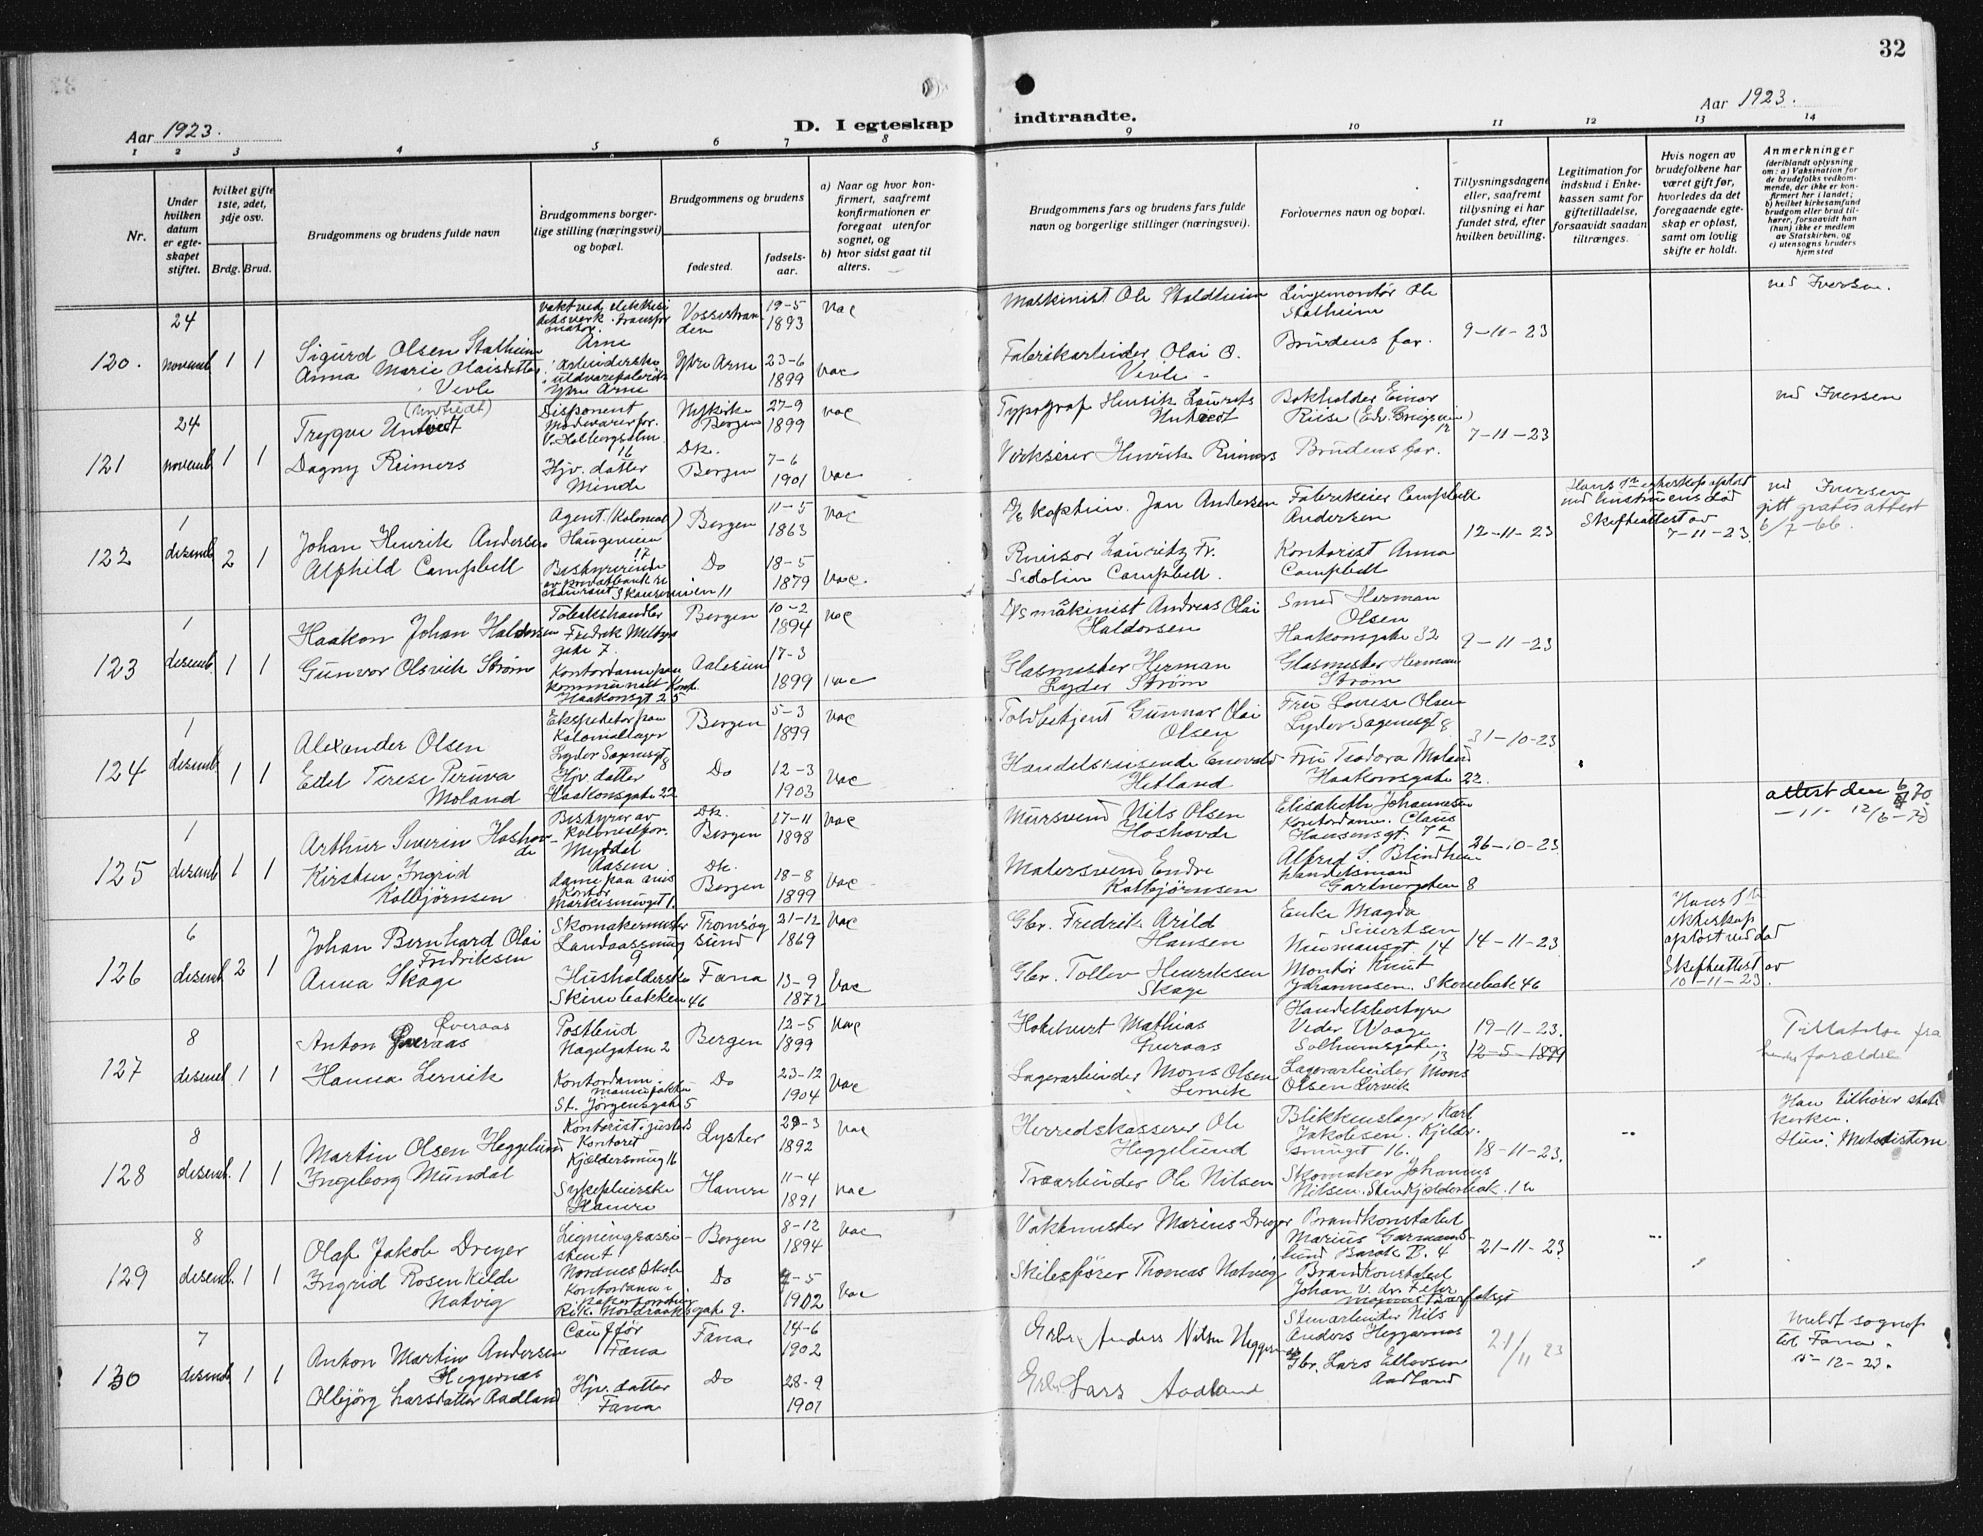 32
Aar 1923.
D. I egteskap
indtraadte.
Aar 1923.
1 2 3 4 5 6 7 8 9 10 11 12 13 14
Nr.
Under hvilken datum er egteskapet stiftet.
hvilket gifte 1ste, 2det, 3dje osv.
Brdg. Brud.
Brudgommens og brudens fulde navn
Brudgommens borgerlige stilling (næringsvei) og bopæl.
Brudgommens og brudens
fødested.
fødselsaar.
a) Naar og hvor konfirmert, saafremt konfirmationen er foregaat utenfor sognet, og
b) hvor sidst gaat til alters.
Brudgommens fars og brudens fars fulde navn og borgerlige stillinger (næringsvei).
Forlovernes navn og bopæl.
Tillysningsdagene eller, saafremt tillysning ei har fundet sted, efter hvilken bevilling.
Legitimation for indskud i Enkekassen samt for giftetilladelse, forsaavidt saadan tiltrænges.
Hvis nogen av brudefolkene har været gift før, hvorledes da det foregaaende egteskap er opløst, samt om lovlig skifte er holdt.
Anmerkninger
(deriblandt oplysning om: a) Vaksination for de brudefolks vedkommende, der ikke er konfirmert her i landet;
b) hvilket kirkesamfund brudgom eller brud tilhører, forsaavidt han (hun) ikke er medlem av Statskirken, og
c) utensogns bruders hjemsted
120. 24 novemb. 1 1
Sigurd Olsen Stalheim
Arne
Vossestranden
19-5 1893
vac
Maskinist Ole Stalheim
Linjemontør Ole Stalheim
9-11-23
ved Iversen.
Anna Marie Olaisdatter Vevle
Ytre Arne
Ytre Arne
23-6 1899
vac
Fabrikarbeider Olai O. Vevle
Brudens far.
121 24 novemb. 1 1
Trygve Untvedt
Disponent
V. Holbergsalm. 16
Nykirke Bergen
27-9 1899
vac
Typograf Henrik Laurits Untvedt
Bokholder Einar Riise
7-11-23
ved Iversen
Dagny Reimers
Hjv. datter Minde
Dk. Bergen
7-6 1901
vac
Verkseier Henrik Reimers
Brudens far.
122 1 desemb. 2 1
Johan Henrik Andersen
Agent (Kolonial)
Haugeveien 17
Bergen
11-5 1863
vac
Kaptein Jan Andersen
Fabrikeier Campbell Andersen
12-11-23
Skifteattest av 7-11-23
ved Iversen
gitt gratis attest 6/7-66.
Alphild Campbell
Bestyrerinde
Do
18-5 1879
vac.
Revisor Lauritz Fr. Sidolin Campbell.
Kontorist Anna Campbell
123 1 desemb. 1 1
Haakon Johan Haldorsen
Tobakshandler
Fredrik Meltzers gate 7.
Bergen
10-2 1894
vac
Maskinist Andreas Olai Haldorsen
Smed Herman Olsen
Haakonsgate 32
9-11-23
Gunvor Olsvik Strøm
Kontordame paa
Haakonsgt 25
Aalesund
17-3 1899
vac
Glasmester Herman Lyder Strøm
Glasmester Herman Strøm
124 1 desemb. 1 1
Alexander Olsen
Ekspeditør paa Kolonialager
Lyder Sagensgt 8
Bergen
5-3 1899
vac
Toldbetjent Gunnar Olai Olsen
Fru Lovise Olsen
Lyder Sagensgt 8
31-10-23
Edel Terese Peruva Moland
Hjv. datter
Haakonsgate 22
Do
12-3 1903
vac
Handelsreisende Enevald Hetland
Fru Teodora Moland
Haakonsgate 22.
125 1 desemb. 1 1
Arthur Severin Hoshovde
Bestyrer av kolonialfor.
Dk. Bergen
17-11 1898
vac
Mursvend Nils Olsen Hoshovde
Elisabeth Johannesen
Kontordame. Claus Hansensgt. 7a
26-10-23
attest den 6/4 70
-11- 12/6-70
Kirsten Ingrid Kolbjørnsen
Kontor
Dk. Bergen
18-8 1899
vac
Malersvend Endre Kolbjørnsen
Alfred S. Blindheim
handelsmand
Gartnergaten 8
126 6 desemb. 2 1
Johan Bernhard Olai Fredriksen
Skomakermester
Landaassvng 9
Tromsøysund
21-12 1869
vac
Gbr. Fredrik Arild Hansen
Enke Magda Sivertsen
Neumansgt. 14
14-11-23
Hans 1ste ekteskap opløst ved død
Skifteattest av 10-11-23.
Anna Skage
Husholderske
Skivebakken 46
Fana
13-9 1872
vac
Gbr. Tollev Henriksen Skage
Montør Knut Johannesen. Skivebak 46
127 8 desemb. 1 1
Anton Øveraas
Øveraas
Postbud
Nagelgaten 2
Bergen
12-5 1899
vac
Mathias Øveraas
Handelsbestyrer Peder Waage
Solheimsgaten 13
19-11-23.
12-5-1899
Tillatelse fra hendes forældre
Hanna Lervik
Kontordame.
St. Jørgensgate 5
Do
23-12 1904
vac
Lagerarbeider Mons Olsen Lervik
Lagerarbeider Mons Olsen Lervik
128 8 desemb. 1 1
Martin Olsen Heggelund
Kontorist
Kjeldersmug 16
Lyster
29-3 1892
vac
Herredskasserer Ole Heggelund
Blikkenslager Karl Jakobsen. Kjeldersmuget 16.
18-11-23.
Han tilhører statskirken.
Hun: Metodistern
Ingeborg Mundal
Sykepleierske
Hamre
Hamre
11-4 1891
vac
Træarbeider Ole Nilsen
Skomaker Johannes Nilsen. Stenkjelderbak. 12
129 8 desemb. 1 1
Olaf Jakob Dreyer
Ligningsassistent
Nordnes Skole
Bergen
8-12 1894
vac
Vaktmester Marius Dreyer
Brandkonstabel Marius Garmandslund Barak B. 4
21-11-23.
Ingrid Rosenkilde Natvig
Kontordame i
Rik. Nordraaksgate 9.
Do
4-5 1902
vac
Skibsfører Thomas Natvig
Brandkonstabel Johan
130 7 desemb. 1 1
Anton Martin Andersen Heggernes
Fana
Fana
14-6 1902
Gbr. Anders Nilsen Heggernes
Stenarbeider Nils Anders Heggernes
21/11 23
Meldt sognet til Fana.
15-12-23.
Olbjørg Larsdatter Aadland
Hjv. datter
Fana
Do
28-9 1901
Gbr. Lars Aadland
Gbr. Lars Ellevsen Aadland